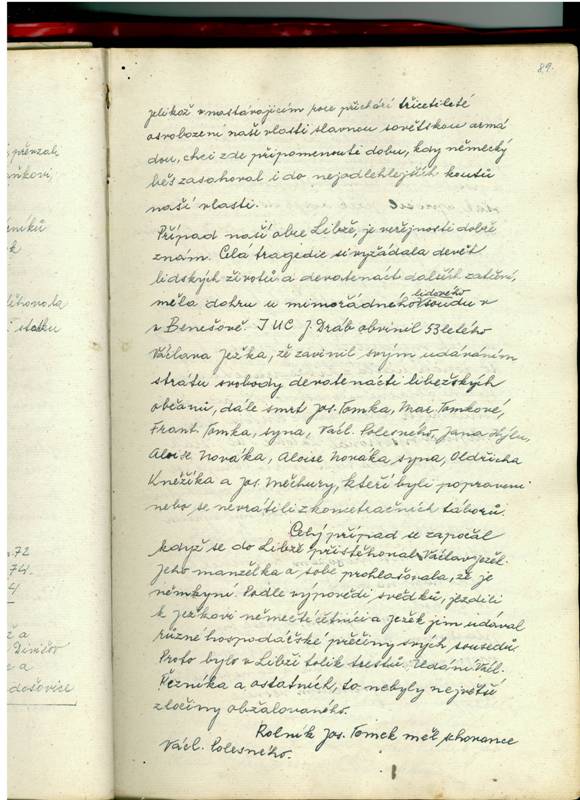 89.
jelikož v nastávajícím roce přichází třicetileté
osvobození naší vlasti slavnou sovětskou armá
dou, chci zde připomenouti dobu, kdy německý
běs zasahoval i do nejodlehlejších koutů
naší vlasti.
Případ naší obce Libže, je veřejnosti dobře
znám. Celá tragedie si vyžádala devět
lidských životů a devatenáct dalších zatčení,
lidového
měla dohru u mimořádného soudu v
v Benešově. JUC J. Dráb obvinil 53 letého
Václava Ježka, že zavinil svým udáváním
strátu svobody devatenácti libežských
občanů, dále smrt Jos. Tomka, Mar. Tomkové,
Frant. Tomka, syna, Václ. Polesného, Jana Hýlu,
Aloise Nováka, Aloise Nováka syna, Oldřicha
Kněžíka a Jos. Měchury, kteří byli popraveni
nebo se nevrátili z koncetračních táborů.
Celý případ se započal
když se do Libže přistěhoval Václav Ježek.
Jeho manželka o sobě prohlašovala, že je
němkyní. Podle výpovědí svědků, jezdili
k Ježkovi němečtí četníci a Ježek jim udával
různé hospodářské přečiny svých sousedů
Proto bylo v Libži tolik trestů. Udání Václ.
Řezníka a ostatních, to nebyly největší
zločiny obžalovaného.
Rolník Jos. Tomek měl schovance
Václ. Polesného.
převzal,
72
74.
4
a
Divišov
a
došovice